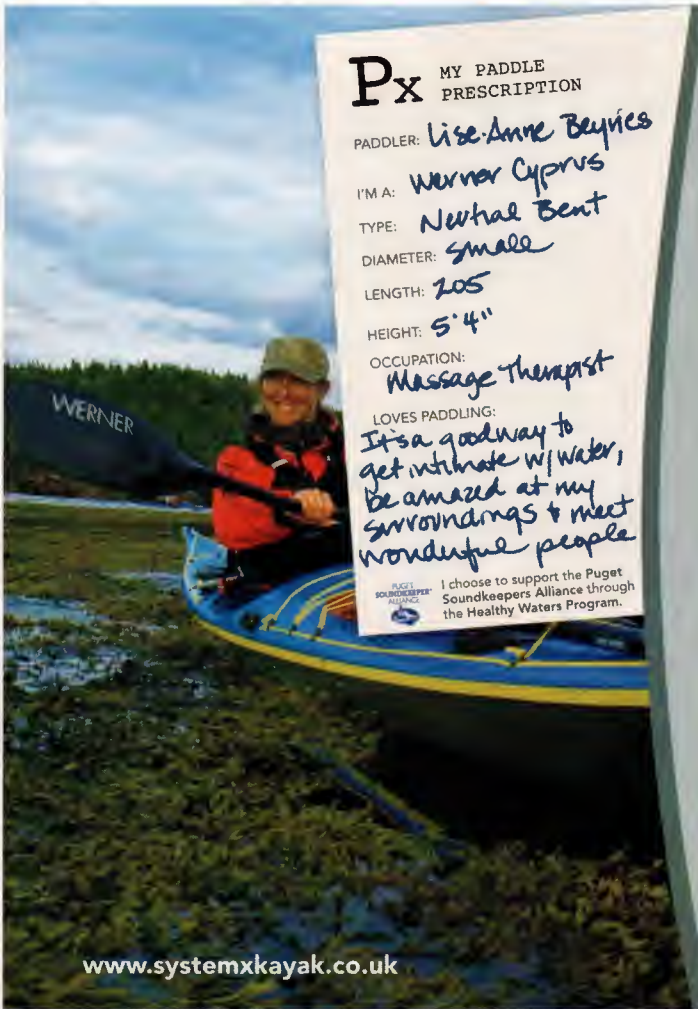 Px MY PADDLE
PRESCRIPTION
PADDLER: Lise-Anne Beyries
I'M A: Werner Cyprus
TYPE: Neutral Bent
DIAMETER: Small
LENGTH: 205
HEIGHT: 5'4"
OCCUPATION:
Massage Therapist
LOVES PADDLING:
It's a good way to
get intimate w/ water,
be amazed at my
surroundings & meet
wonderful people
PUGET
SOUNDKEEPER
ALLIANCE
I choose to support the Puget
Soundkeepers Alliance through
the Healthy Waters Program.
WERNER
www.systemxkayak.co.uk